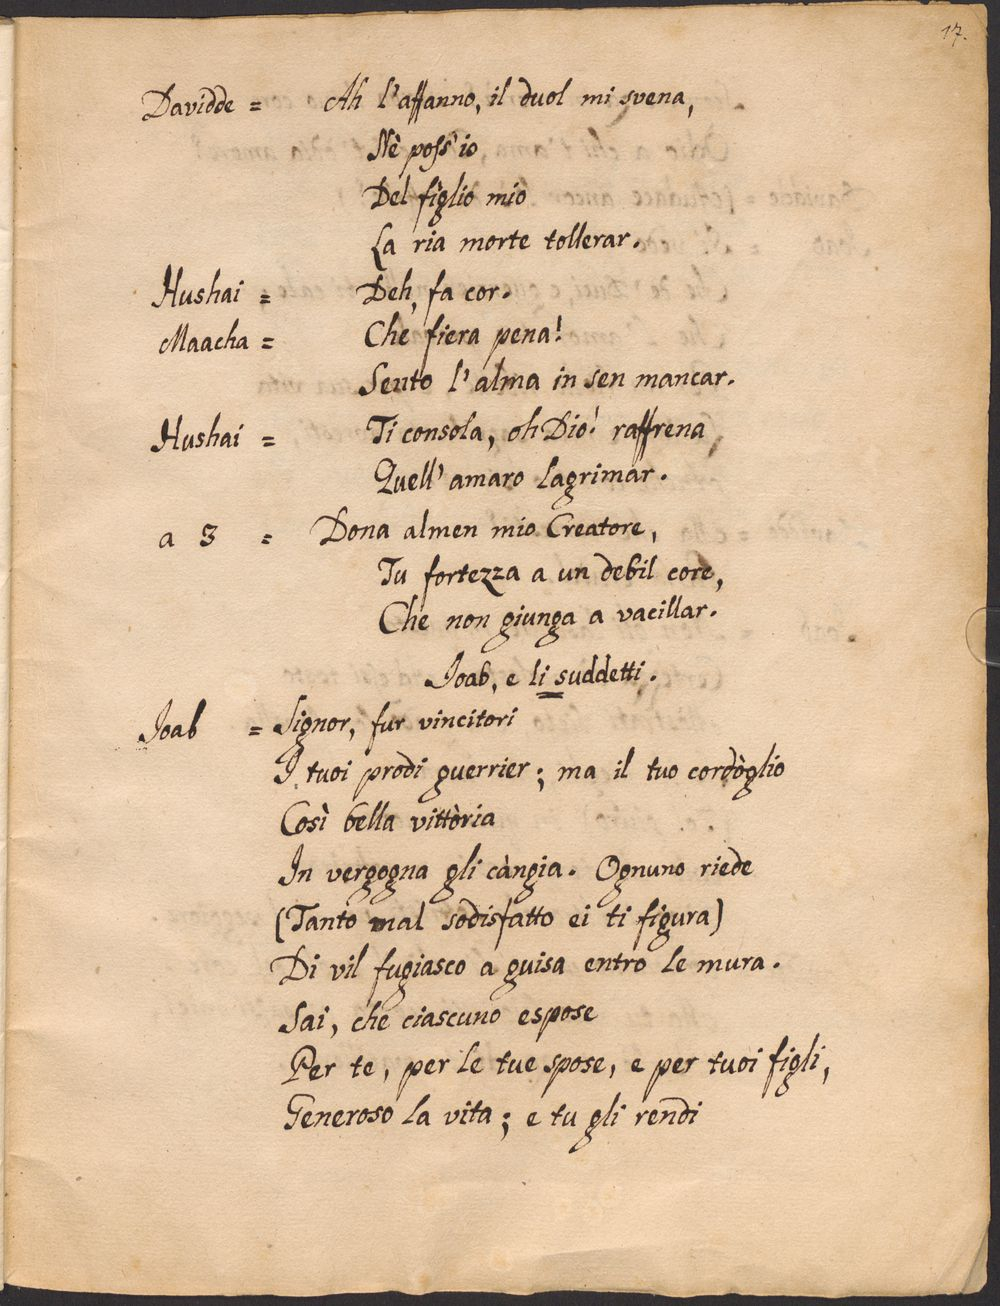 17.
Davidde = Ah l'affanno, il duol mi svena,
Nè poss'io
Del figlio mio
La ria morte tollerar.
Hushai = Deh, fa cor.
Maacha = Che fiera pena!
Sento l'alma in sen mancar.
Hushai = Ti consola, oh Dio! raffrena
Quell'amaro lagrimar.
a 3 = Dona almen mio Creatore,
Tu fortezza a un debil core,
Che non giunga a vacillar.
Joab, e li suddetti.
Joab = Signor, fur vincitori
I tuoi prodi guerrier; ma il tuo cordòglio
Così bella vittòria
In vergogna gli càngia. Ognuno riede
(Tanto mal sodisfatto ei ti figura)
Di vil fugiasco a guisa entro le mura.
Sai, che ciascuno espose
Per te, per le tue spose, e per tuoi figli,
Generoso la vita; e tu gli rendi